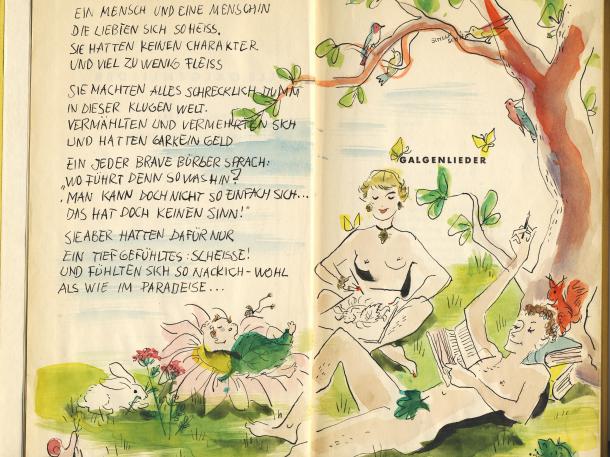 EIN MENSCH UND EINE MENSCHIN
DIE LIEBTEN SICH SO HEISS.
SIE HATTEN KEINEN CHARAKTER
UND VIEL ZU WENIG FLEISS
SIE MACHTEN ALLES SCHRECKLICH DUMM
IN DIESER KLUGEN WELT.
VERMÄHLTEN UND VERMEHRTEN SICH
UND HATTEN GARKEIN GELD
EIN JEDER BRAVE BÜRGER SPRACH:
„WO FÜHRT DENN SOWAS HIN?
MAN KANN DOCH NICHT SO EINFACH SICH...
DAS HAT DOCH KEINEN SINN!"
SIE ABER HATTEN DAFÜR NUR
EIN TIEFGEFÜHLTES: SCHEISSE!
UND FÜHLTEN SICH SO NACKICH-WOHL
ALS WIE IM PARADEISE...
GALGENLIEDER